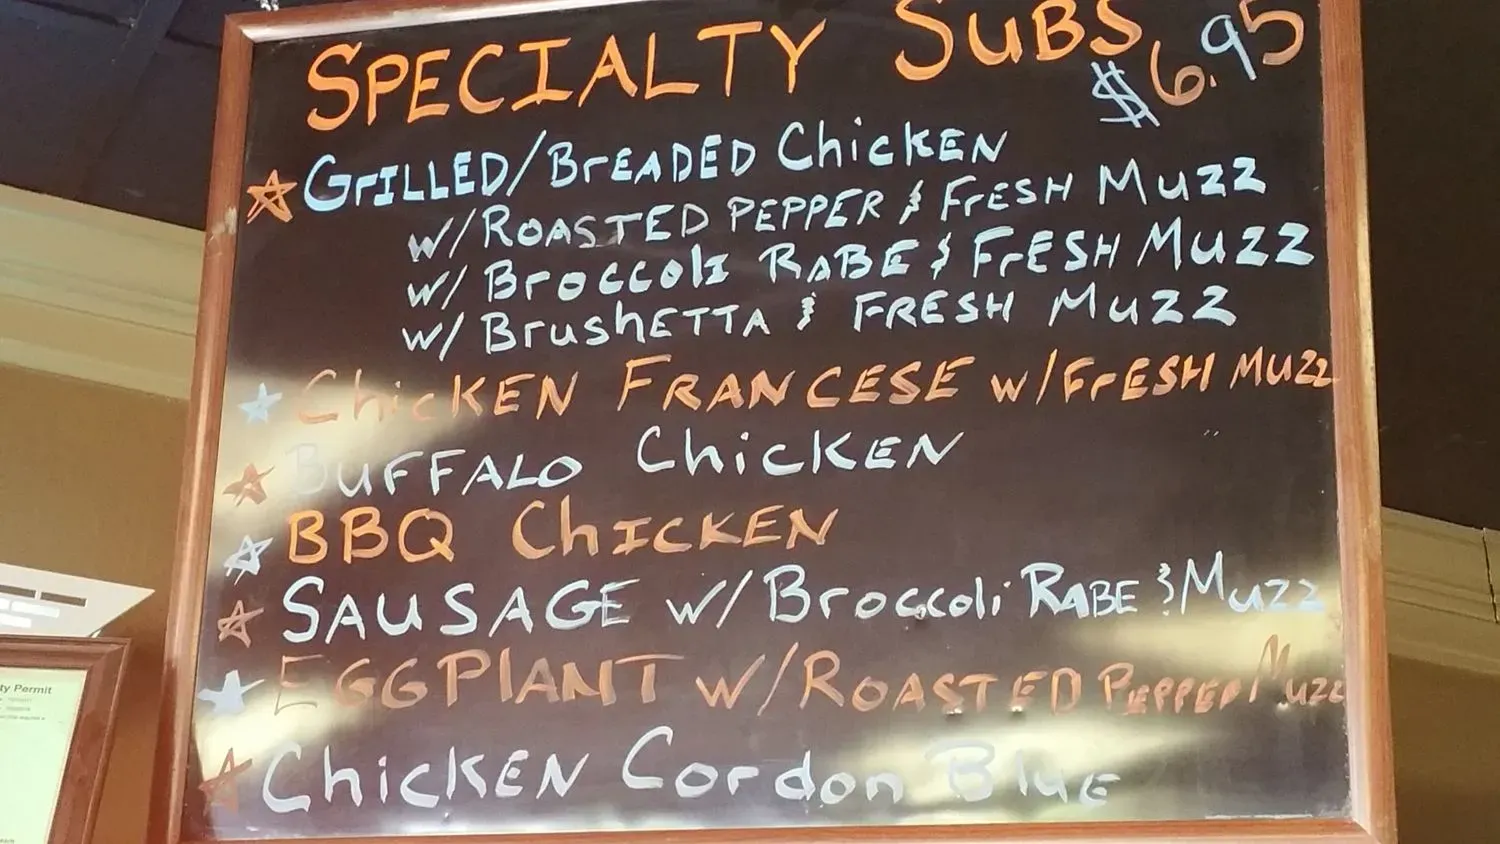 SPECIALTY SUBS $6.95
GrILLED/BrEADED ChicKEN
w/ROASTED PEPPER & FrESH Muzz
w/ Broccoli RABE & FrESH Muzz
w/ BrushETTA & FRESH Muzz
ChicKEN FRANCESE w/FrESH Muzz
BUFFALO ChicKEN
BBQ ChICKEN
SAUSAGE w/Broccoli RABE & Muzz
EGGPlANT w/ROASTED PEPPER Muzz
ChicKEN Cordon BluE
ty Permit